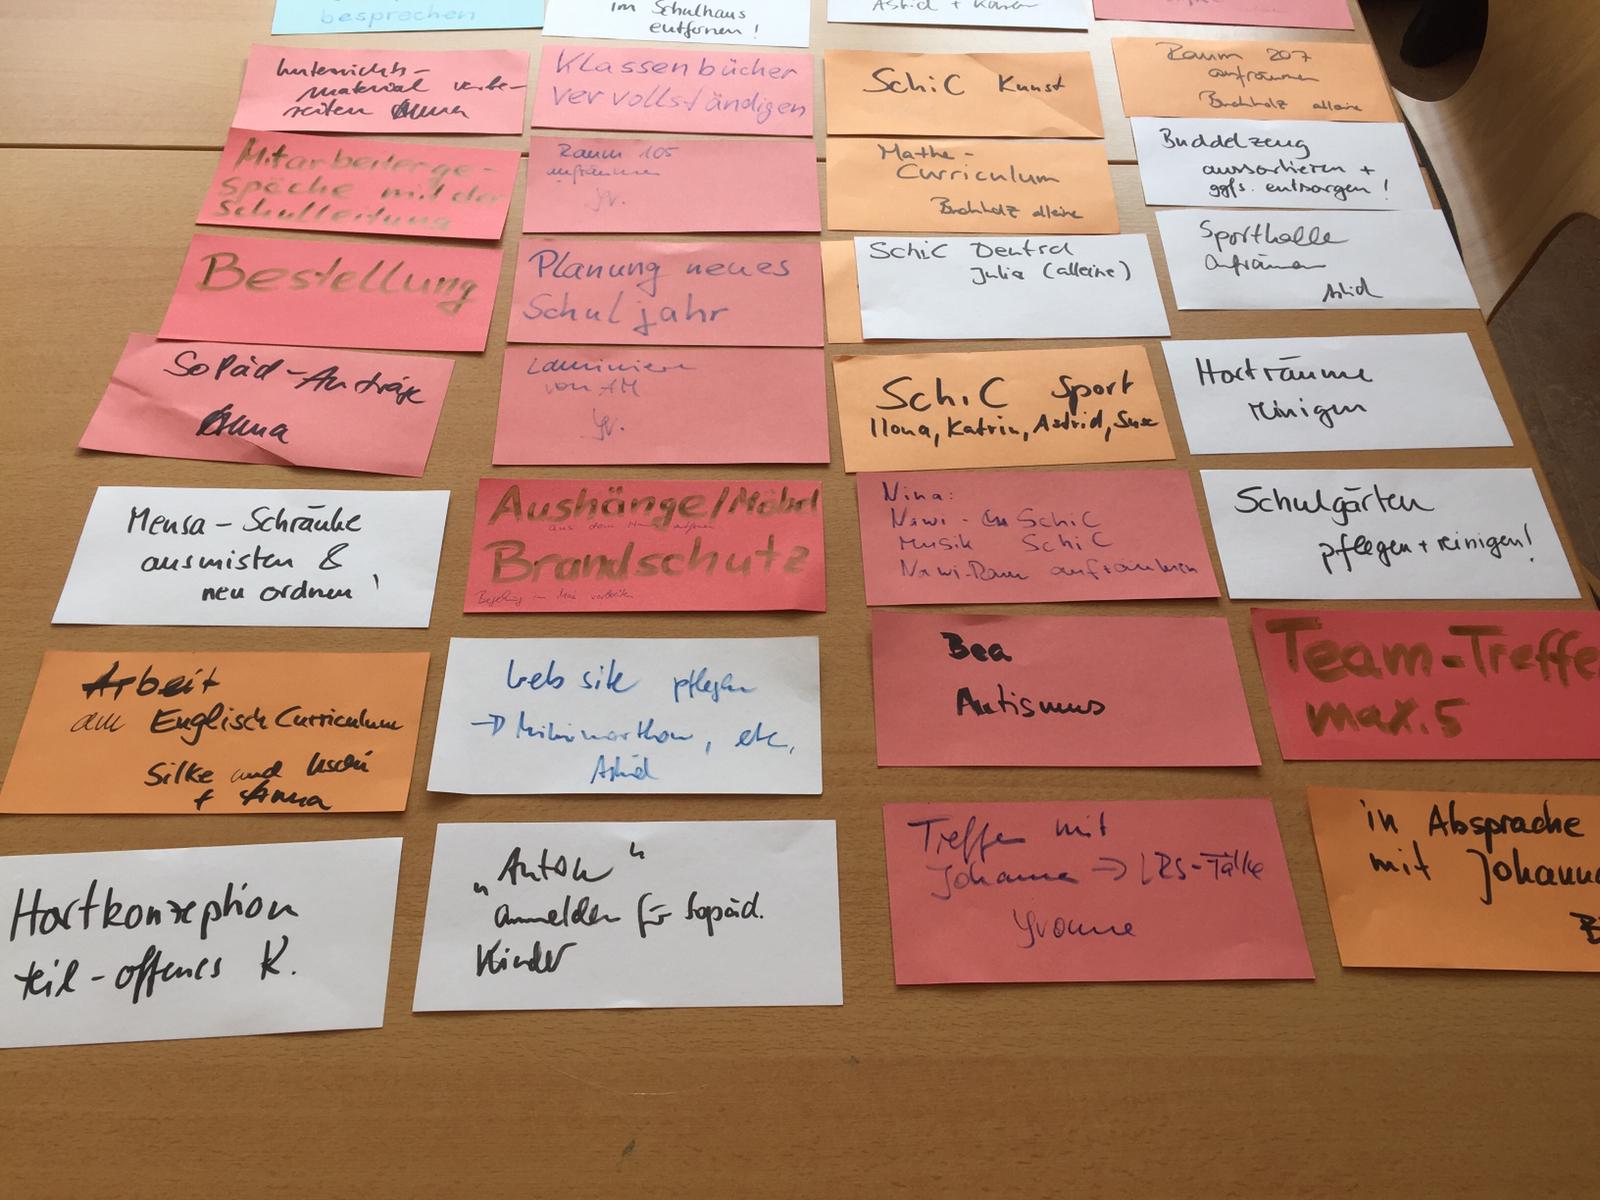 besprechen
im Schulhaus
entfernen!
Astrid + Karen
Unterrichts-
material vorbe-
reiten Anna
Klassenbücher
vervollständigen
SchiC Kunst
Raum 207
aufräumen
Buchholz alleine
Mitarbeiterge-
späche mit der
Schulleitung
Raum 105
aufräumen
Yv.
Mathe-
Curriculum
Buchholz alleine
Buddelzeug
aussortieren +
ggfs. entsorgen!
Bestellung
Planung neues
Schuljahr
SchiC Deutsch
Julia (alleine)
Sporthalle
aufräumen
Astrid
SoPäd-Anträge
Anna
Laminieren
von AM
Yv.
SchiC Sport
Ilona, Katrin, Astrid, Suse
Horträume
reinigen
Mensa-Schränke
ausmisten &
neu ordnen!
Aushänge/Möbel
Brandschutz
Nina:
Nawi - SchiC
Musik SchiC
Nawi-Raum aufräumen
Schulgärten
pflegen + reinigen!
Arbeit
am Englisch Curriculum
Silke und Uschi
+ Anna
Website pflegen
→ Minimarathon, etc.
Astrid
Bea
Autismus
Team-Treffe
max. 5
Hortkonzeption
teil-offenes K.
„Anton"
anmelden für Sopäd.
Kinder
Treffen mit
Johanna → LRS-Fälle
Yvonne
in Absprache
mit Johanna
B